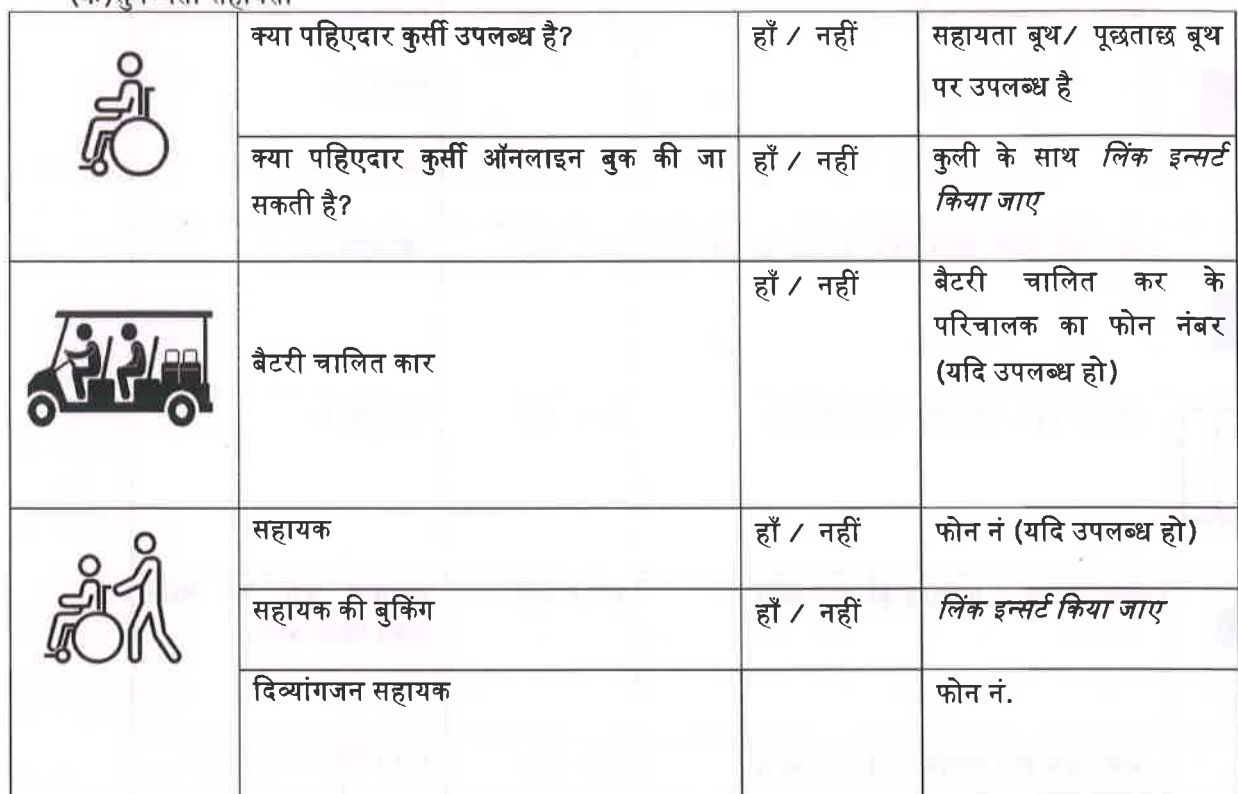 क्या पहिएदार कुर्सी उपलब्ध है?
हाँ / नहीं
सहायता बूथ/ पूछताछ बूथ
पर उपलब्ध है
क्या पहिएदार कुर्सी ऑनलाइन बुक की जा
सकती है?
हाँ / नहीं
कुली के साथ लिंक इन्सर्ट
किया जाए
बैटरी चालित कार
हाँ / नहीं
बैटरी चालित कर के
परिचालक का फोन नंबर
(यदि उपलब्ध हो)
सहायक
हाँ / नहीं
फोन नं (यदि उपलब्ध हो)
सहायक की बुकिंग
हाँ / नहीं
लिंक इन्सर्ट किया जाए
दिव्यांगजन सहायक
फोन नं.